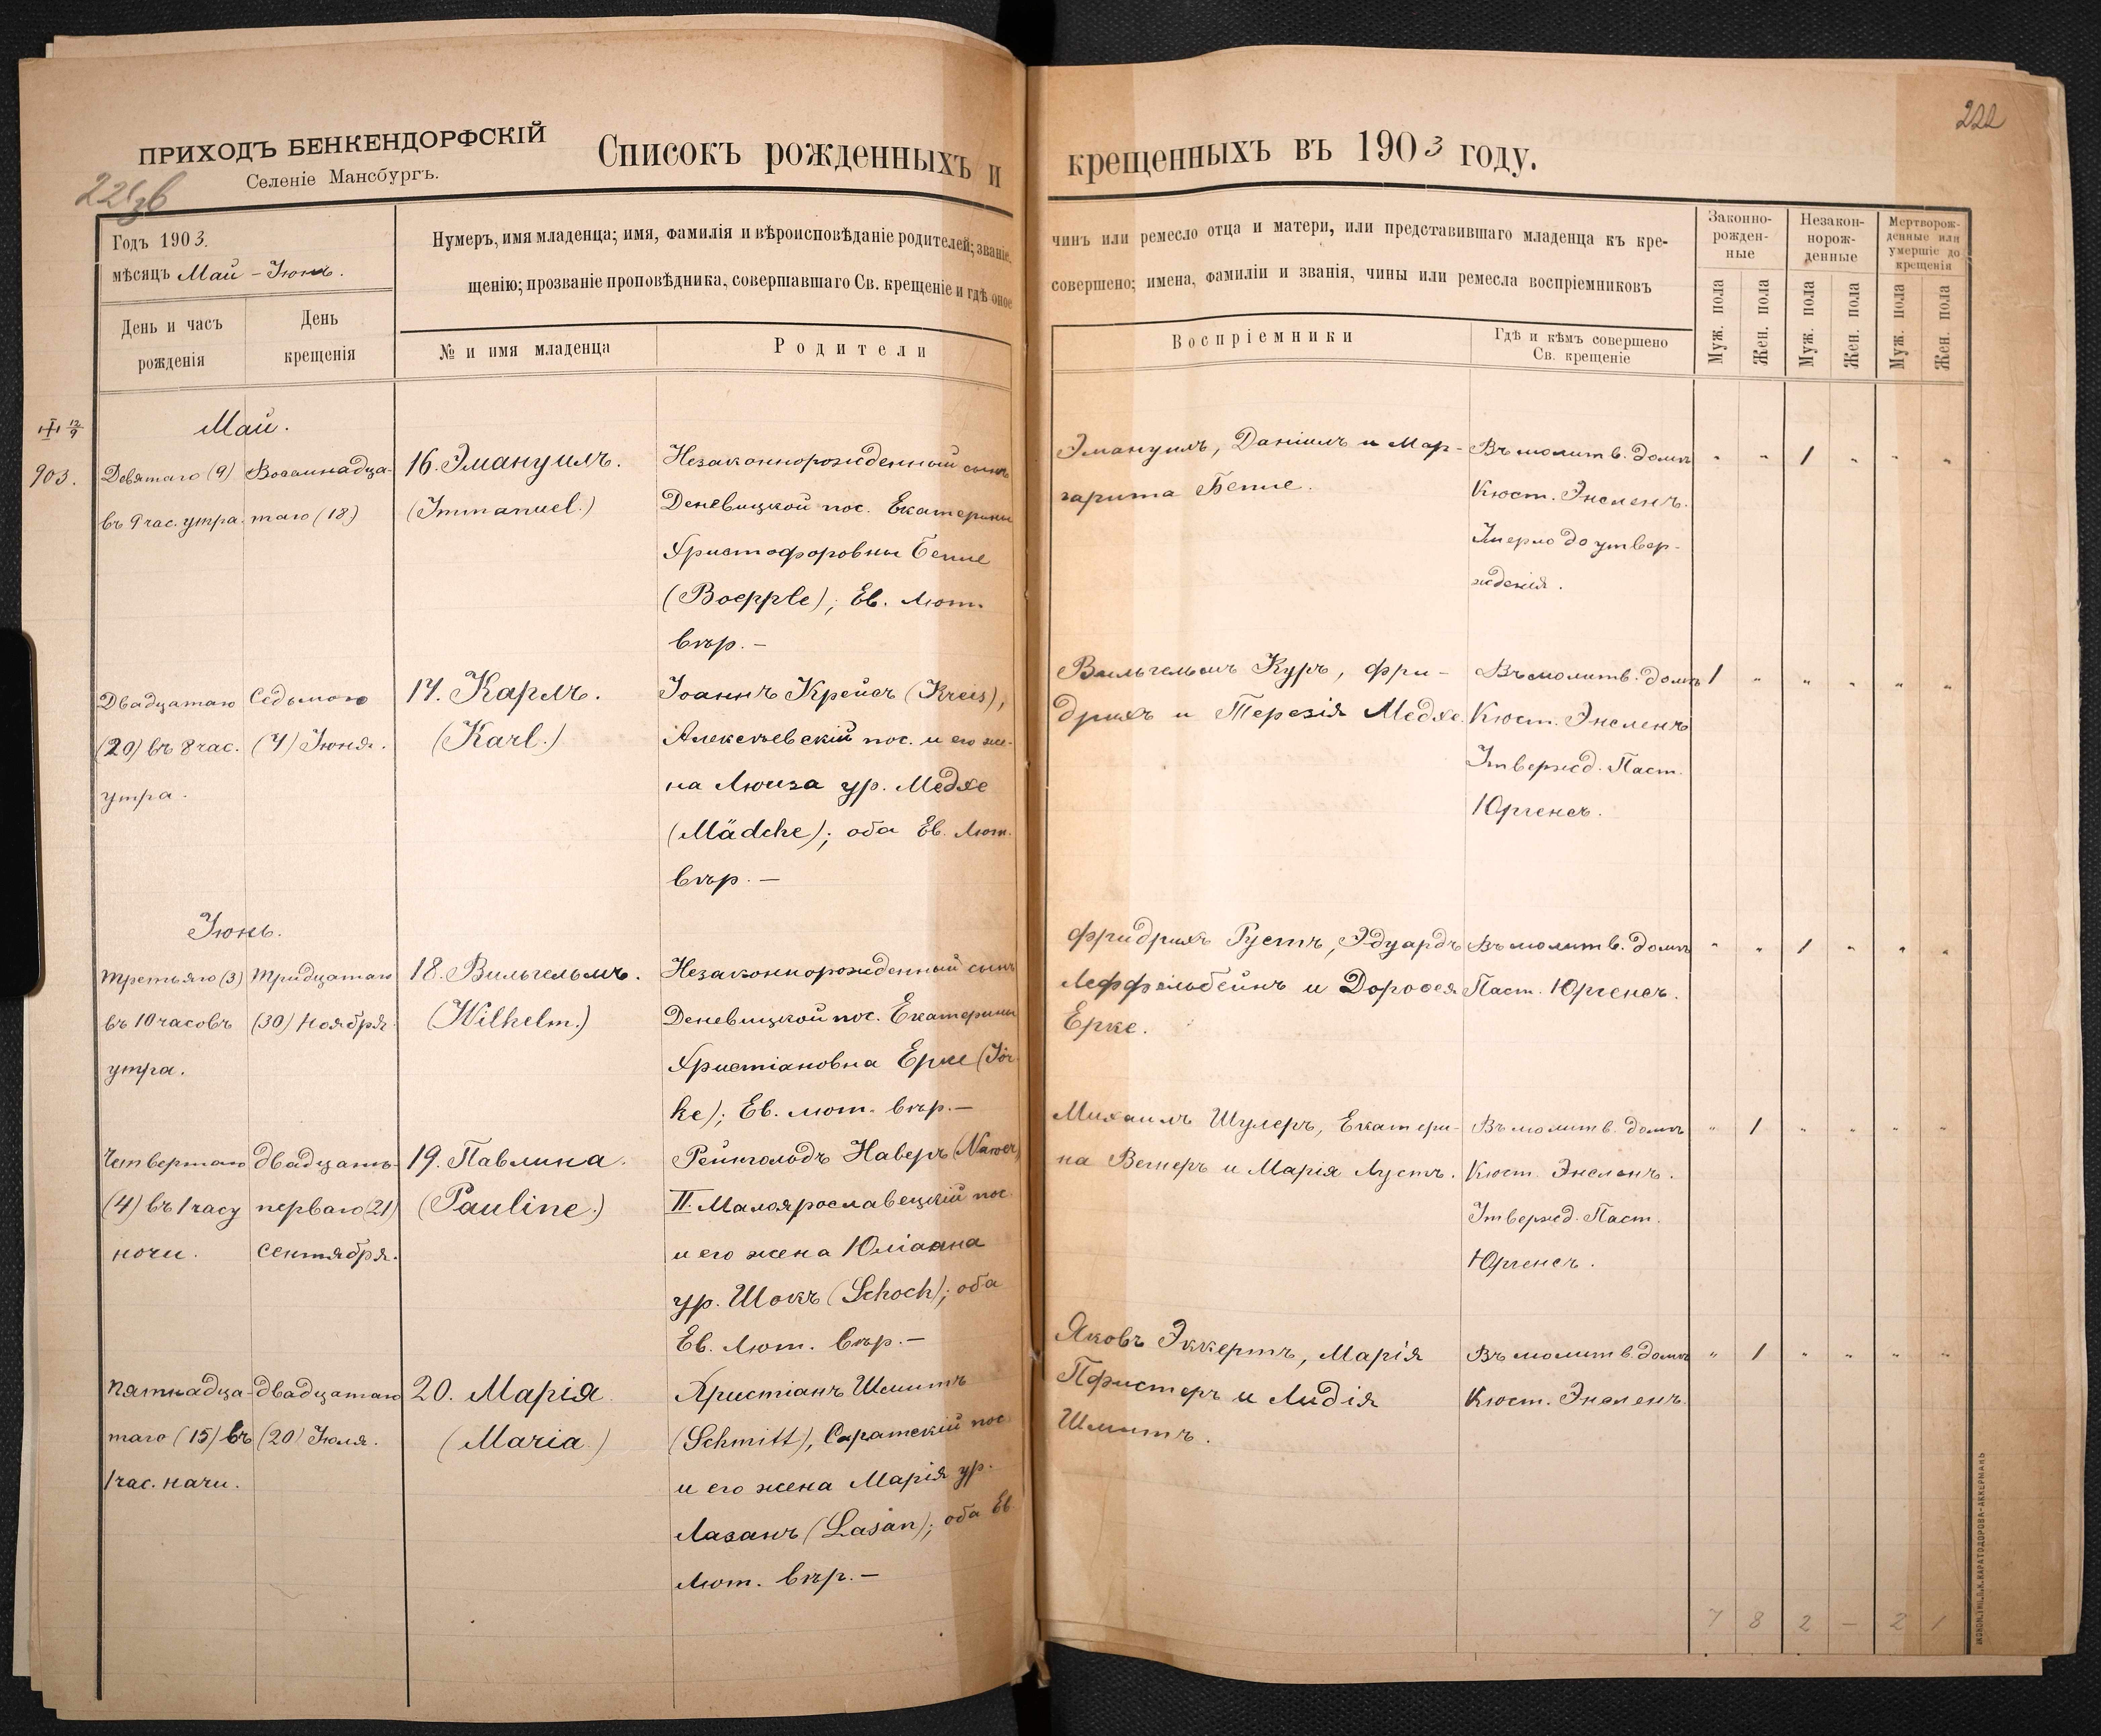 ПРИХОДЪ БЕНКЕНДОРФСКІЙ
Селеніе Мансбургъ.
Списокъ рожденныхъ и
Годъ 1903.
мѣсяцъ Май – Іюнь.
День и часъ
рожденія
День
крещенія
Нумеръ, имя младенца; имя, фамилія и вѣроисповѣданіе родителей; званіе,
щенію; прозваніе проповѣдника, совершавшаго Св. крещеніе и гдѣ оное
№ и имя младенца
Родители
Май.
903.
Девятаго (9)
въ 9 час. утра.
Восемнадца-
таго (18)
16. Эмануилъ.
(Immanuel.)
Незаконнорожденный сынъ
Деневицкой пос. Екатерины
Христофоровны Беппе
(Boepple); Ев. Лют.
вѣр. –
Двадцатаго
(20) въ 8 час.
утра.
Седьмого
(7) Іюня.
17. Карлъ.
(Karl.)
Іоаннъ Крейсъ (Kreis),
Алексѣевскій пос. и его же-
на Люиза ур. Медхе
(Mädche); оба Ев. Лют.
вѣр. –
Іюнь.
Третьяго (3)
въ 10 часовъ
утра.
Тридцатаго
(30) Ноября.
18. Вильгельмъ.
(Wilhelm.)
Незаконнорожденный сынъ
Деневицкой пос. Екатерины
Христіановна Ерке (Jör-
ke); Ев. лют. вѣр. –
Четвертаго
(4) въ 1 часу
ночи.
двадцать
перваго (21)
Сентября.
19. Павлина.
(Pauline.)
Рейнгольдъ Наверъ (Nawer)
II. Малоярославецкій пос.
и его жена Юліанна
ур. Шокъ (Schoch); оба
Ев. Лют. вѣр. –
Пятнадца-
таго (15) въ
1 час. ночи.
двадцатаго
(20) Іюля.
20. Марія.
(Maria.)
Христіанъ Шмитъ
(Schmitt), Саратскій пос.
и его жена Марія ур.
Лазанъ (Lasan); оба Ев.
Лют. вѣр. –
222
крещенныхъ въ 1903 году.
чинъ или ремесло отца и матери, или представившаго младенца къ кре-
совершено; имена, фамиліи и званія, чины или ремесла воспріемниковъ
Воспріемники
Гдѣ и кѣмъ совершено
Св. крещеніе
Законно-
рожден-
ные
Незакон-
норож-
денные
Мертворож-
денные или
умершіе до
крещенія
Муж. пола
Жен. пола
Муж. пола
Жен. пола
Муж. пола
Жен. пола
Эмануилъ, Даніилъ и Мар-
гарита Беппе.
Въ молитв. домѣ
Кюст. Энсленъ.
Умерло до утвер-
жденія.
" " 1 " " "
Вильгельмъ Куръ, Фри-
дрихъ и Терезія Медхе.
Въ молитв. домѣ
Кюст. Энсленъ
Утвержд. Паст.
Юргенсъ.
1 " " " " "
Фридрихъ Густъ, Эдуардъ
Леффельбейнъ и Доровея
Ерке.
Въ молитв. домѣ
Паст. Юргенсъ.
" " 1 " " "
Михаилъ Шулеръ, Екатери-
на Вегнеръ и Марія Лустъ.
Въ молитв. домѣ
Кюст. Энсленъ.
Утвержд. Паст.
Юргенсъ.
" 1 " " " "
Яковъ Эккертъ, Марія
Пфистеръ и Лидія
Шмитъ.
Въ молитв. домѣ
Кюст. Энсленъ.
" 1 " " " "
7 8 2 – 2 1